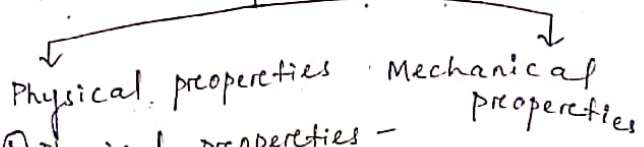 Physical preopereties Mechanical
preopereties
preopereties -